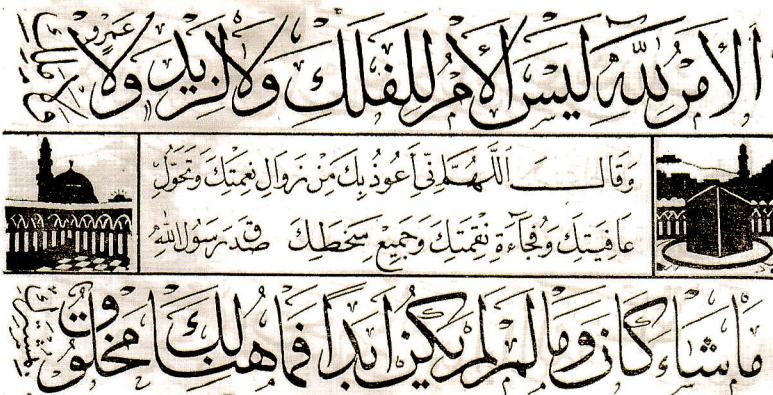 الأمر لله ليس الأمر للفلك ولا لزيد ولا عمرو
وقال اللهم إني أعوذ بك من زوال نعمتك وتحول
عافيتك وفجاءة نقمتك وجميع سخطك صدق رسول الله
ما شاء كان وما لم لم يكن أبدا فما هنالك مخلوق